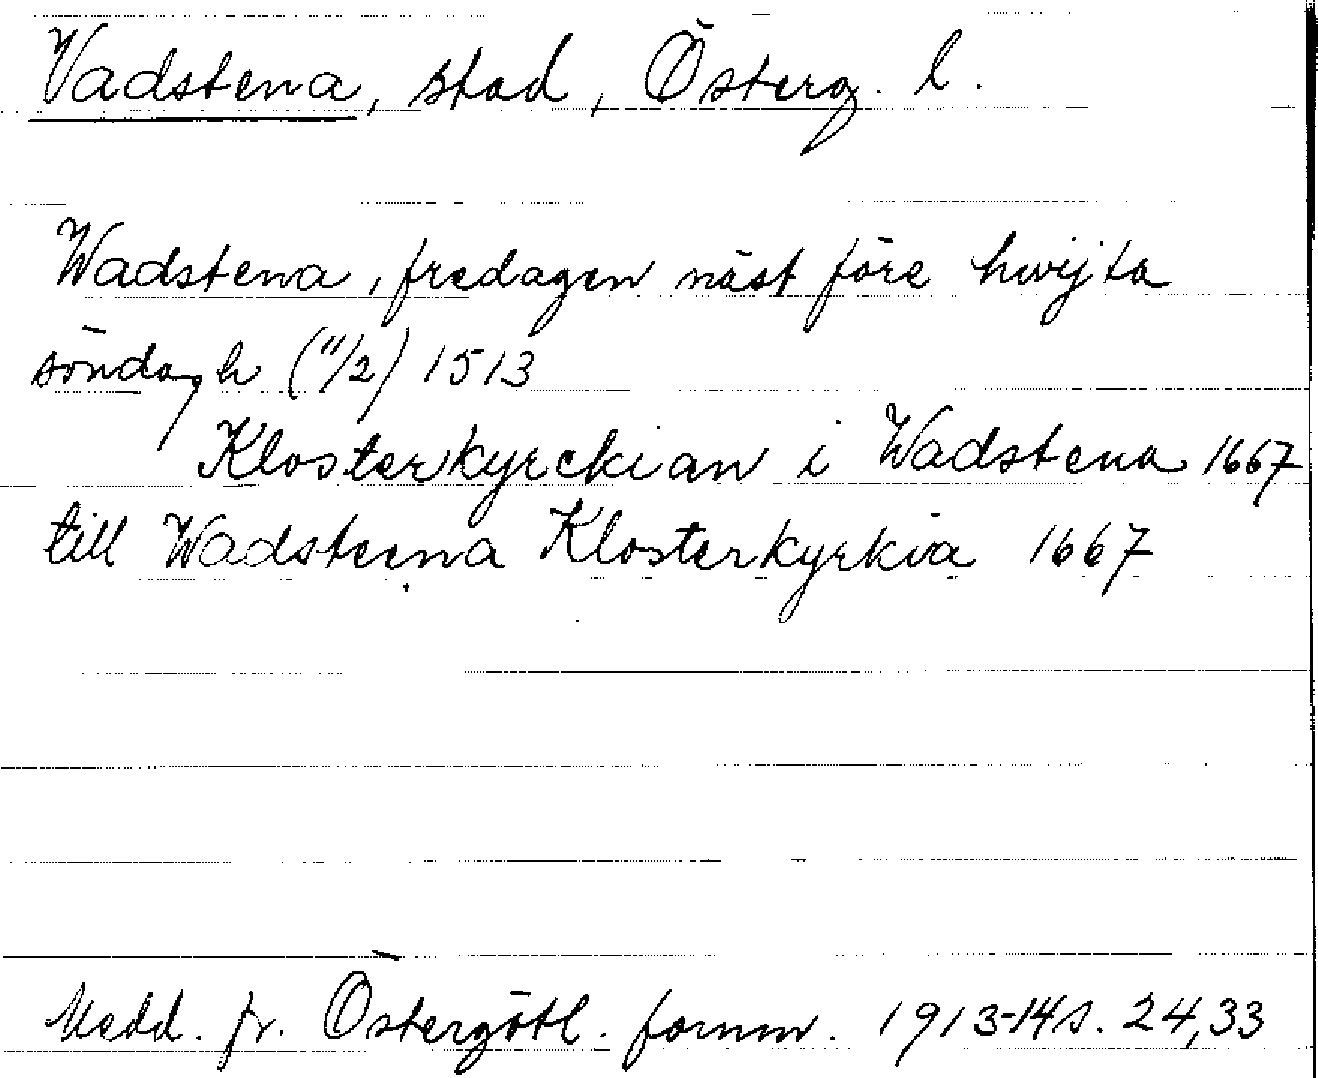 Vadstena, stad, Österg. l.
Wadstena, fredagen näst före hwijta
söndagh (11/2) 1513
Klosterkyrckian i Wadstena 1667
till Wadsteena Klosterkyrkia 1667
Medd. fr. Östergötl. fornm. 1913-14 s. 24,33